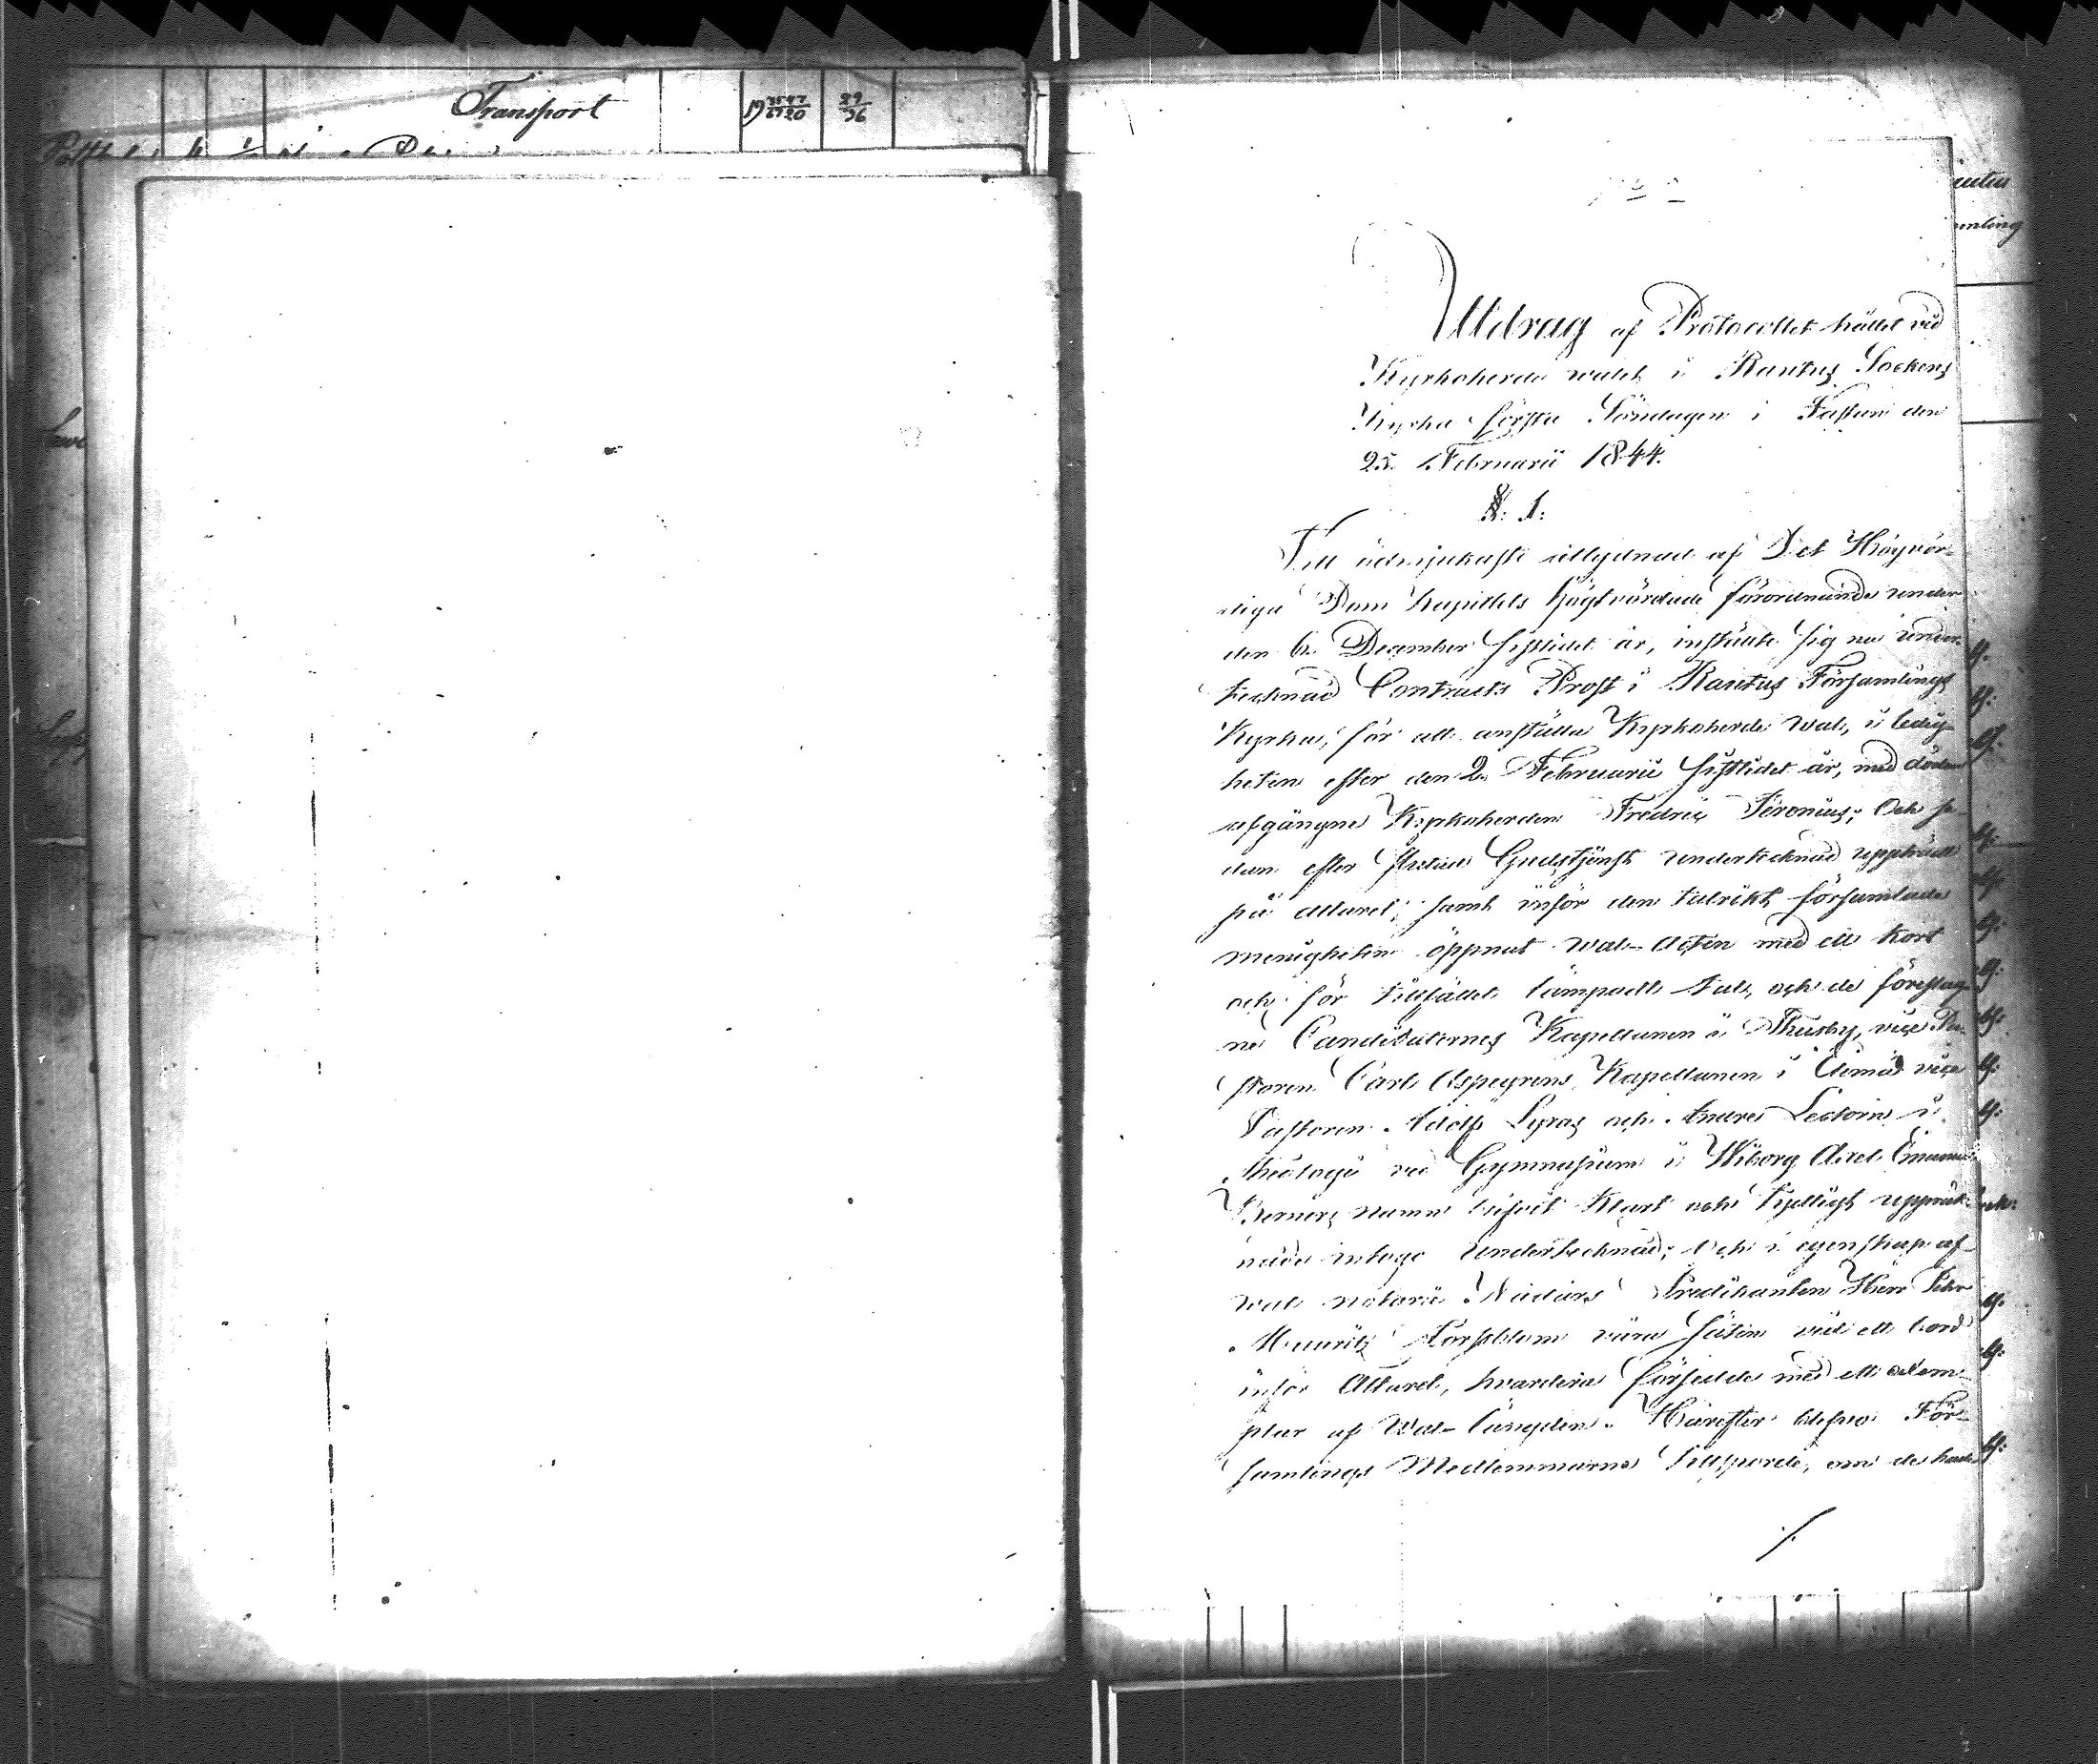 Transport
19 3547/6720 29/36
N:o 2
Utdrag af Protocollet hållet vid
Kyrkoherde walet i Rautus Sockens
Kyrka första Söndagen i Fastan den
25. Februarii 1844.
§: 1:
Till ödmjukaste åtlydnad af Det Högvör-
diga Dom Kapitlets högtvördade förordnande under
den 6. December sistlidet år, instälte sig nu under-
tecknad Contracts Prost i Rautus Församlings
Kyrka, för att anställa Kyrkoherde wal, i ledig-
heten efter den 2. Februarii sistlidet år, med döden
afgångne Kyrkoherden Fredric Feronius; Och se-
dan efter slutad Gudstjenst undertecknad uppträdt
på altaret, samt inför den talrikt församlade
menigheten öppnat wal-Acten med ett kort
och för tillfället lämpadt tal, och de föreslag-
ne Candidaternes Kapellanen i Thusby, vice Pa-
storen Carl Aspegrens, Kapellanen i Elimä vice
Pastoren Adolf Lyras och Andre Lectorn i
theologi vid Gymnasium i Wiborg Axel Emanuel
Berners namn blifvit klart och tydligt uppräk-
nade intogo undertecknad, och i egenskap af
wal notarie Nådårs Predikanten Herr Pehr
Mauritz Forsblom våra säten vid ett bord
inför Altaret, hvardera försedde med ett exem-
plar af Wal-Längden. Härefter blefvo För-
samlings Medlemmarne tillsporde, om de hade
./.